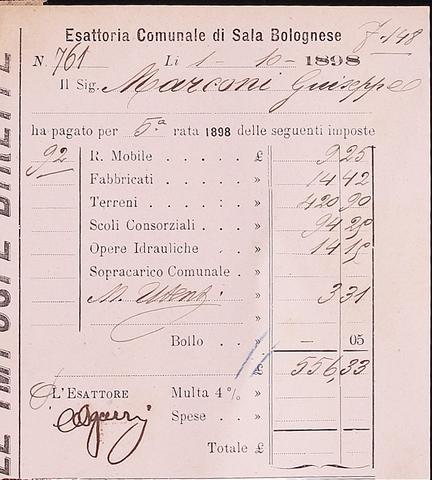 Esattoria Comunale di Sala Bolognese
F. 148
N. 761 Li 1 - 10 - 1898
Il Sig. Marconi Guiseppe
ha pagato per 5.a rata 1898 delle seguenti imposte
92 R. Mobile . . . . . £ 9 25
Fabbricati . . . . . » 14 42
Terreni . . . . : . » 420 90
Scoli Consorziali . . . » 94 25
Opere Idrauliche . . » 14 15
Sopracarico Comunale . »
M. Utenz. » 3 31
Bollo . . » — 05
£ 556,33
L'ESATTORE Multa 4 % . »
Spese . . »
Totale £
LE IMPOSTE DIRETTE